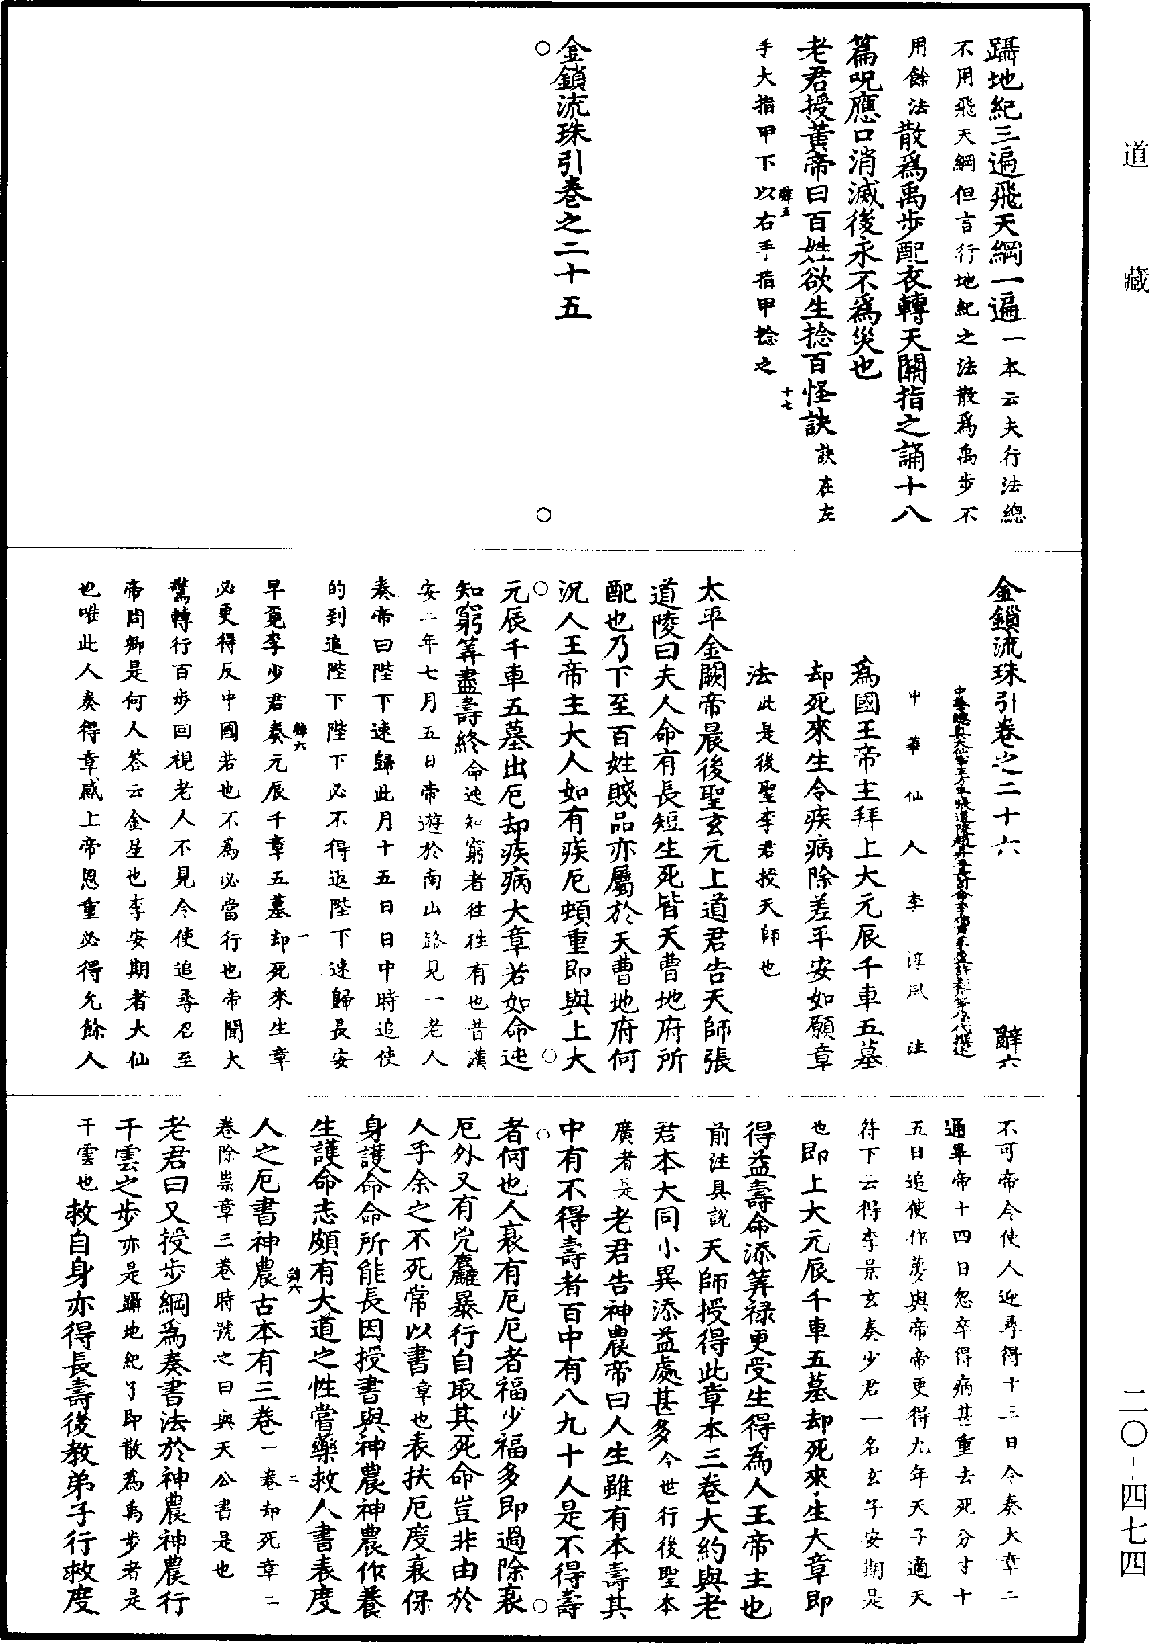 道藏
蹑地紀三遍飛天綱一遍一本云夫行法總
不用飛天綱但言行地紀之法散為禹步不
用餘法散為禹步配衣轉天關指之誦十八
篇呪應口消滅後永不為災也
老君授黃帝曰百姓欲生捻百怪訣訣在左
辭五 十七
手大指甲下以右手指甲捻之
金鎖流珠引卷之二十五
金鎖流珠引卷之二十六 辭六
中華仙人李淳風注
為國王帝主拜上大元辰千車五墓
却死來生令疾病除差平安如願章
法此是後聖李君授天師也
太平金闕帝晨後聖玄元上道君告天師張
道陵曰夫人命有長短生死皆天曹地府所
配也乃下至百姓賤品亦屬於天曹地府何
況人王帝主大人如有疾厄頓重即與上大
元辰千車五墓出厄却疾病大章若如命迍
知窮筭盡壽終命迍知窮者往往有也昔漢
安二年七月五日帝遊於南山路見一老人
奏帝曰陛下速歸此月十五日日中時追使
的到追陛下陛下必不得返陛下速歸長安
辭六 一
早覓李少君奏元辰千章五墓却死來生章
必更得反中國若也不為必當行也帝聞大
驚轉行百步回視老人不見令使追尋召至
帝問卿是何人荅云金星也李安期者大仙
也唯此人奏得章感上帝恩重必得允餘人
不可帝令使人迎尋得十三日令奏大章二
通畢帝十四日忽卒得病甚重去死分寸十
五日追使作夢與帝帝更得九年天子適天
符下云得李景玄奏少君一名玄字安期是
也即上大元辰千車五墓却死來生大章即
得益壽命添筭祿更受生得為人王帝主也
前注具說天師授得此章本三卷大約與老
君本大同小異添益處甚多今世行後聖本
廣者是老君告神農帝曰人生雖有本壽其
中有不得壽者百中有八九十人是不得壽
者何也人衰有厄厄者福少福多即過除衰
厄外又有兇麤暴行自取其死命豈非由於
人乎余之不死常以書章也表扶厄度衰保
身護命命所能長因授書與神農神農作養
生護命志頗有大道之性嘗藥救人書表度
辭六 二
人之厄書神農古本有三卷一卷却死章二
卷除祟章三卷時號之曰與天公書是也
老君曰又授步綱為奏書法於神農神農行
千雲之步亦是躡地紀了即散為禹步者是
千雲也救自身亦得長壽後教弟子行救度
二〇-四七四